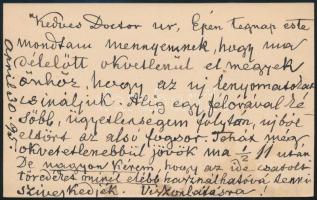 "Kedves Doctor ur, Épen tegnap este
mondtam mennyemnek, hogy ma
délelőtt okvetlenül el megyek
önhöz, hogy az uj lenyomatokat
csináljuk. Alig egy félórával ké
sőbb, ügyetlenségem folytán, ujból
eltört az alsó fogsor. Tehát még
okvetetlenebbül jövök ma ½ 11 után
De nagyon kérem, hogy az ide csatolt
töredéket minél előbb használhatóvá tenni
sziveskedjék. Viszonlátásra!
April 30.